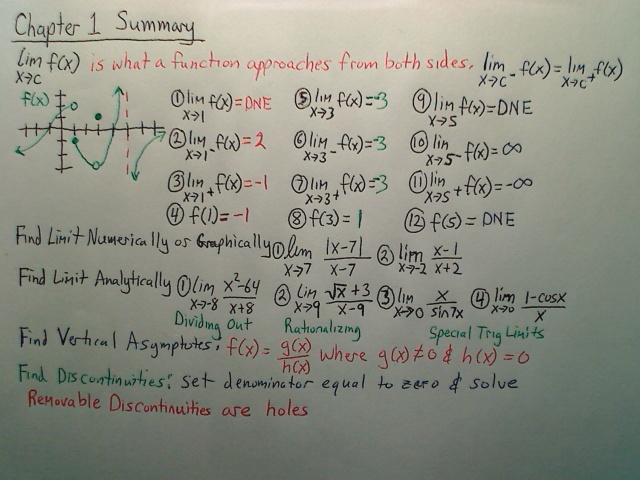 Chapter 1 Summary
lim x→c f(x) is what a function approaches from both sides. lim x→c⁻ f(x) = lim x→c⁺ f(x)
f(x)
① lim x→1 f(x) = DNE ⑤ lim x→3 f(x) = -3 ⑨ lim x→5 f(x) = DNE
② lim x→1⁻ f(x) = 2 ⑥ lim x→3⁻ f(x) = -3 ⑩ lim x→5⁻ f(x) = ∞
③ lim x→1⁺ f(x) = -1 ⑦ lim x→3⁺ f(x) = -3 ⑪ lim x→5⁺ f(x) = -∞
④ f(1) = -1 ⑧ f(3) = 1 ⑫ f(5) = DNE
Find Limit Numerically or Graphically ① lim x→7 |x-7|/x-7 ② lim x→-2 x-1/x+2
Find Limit Analytically ① lim x→-8 x²-64/x+8 ② lim x→9 √x+3/x-9 ③ lim x→0 x/sin7x ④ lim x→0 1-cosx/x
Dividing Out Rationalizing Special Trig Limits
Find Vertical Asymptotes: f(x) = g(x)/h(x) where g(x) ≠ 0 & h(x) = 0
Find Discontinuities: set denominator equal to zero & solve
Removable Discontinuities are holes